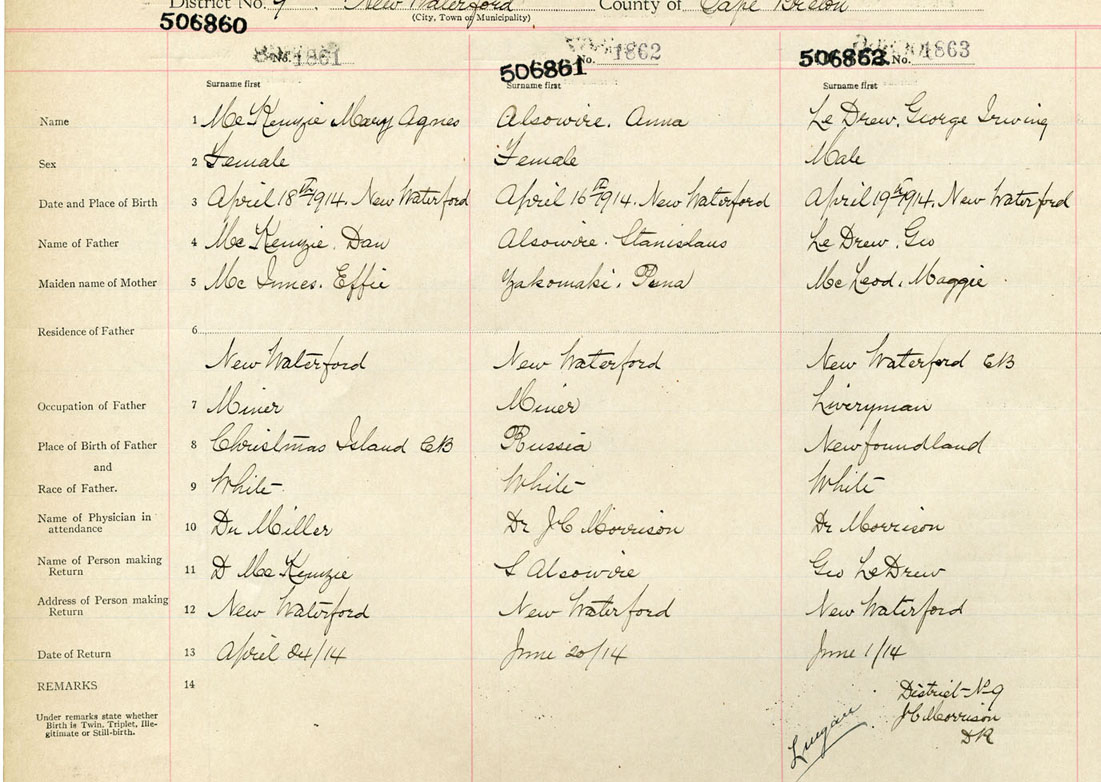 District No. 9. New Waterford County of Cape Breton
(City, Town or Municipality)
506860 506861 506862
No. 1861 No. 1862 No. 1863
Surname first Surname first Surname first
Name 1 McKenzie Mary Agnes Alsowire. Anna Le Drew. George Irving
Sex 2 Female Female Male
Date and Place of Birth 3 April 18th 1914. New Waterford April 16th 1914. New Waterford April 19th 1914. New Waterford
Name of Father 4 McKenzie. Dan Alsowire. Stanislaus Le Drew. Geo
Maiden name of Mother 5 McInnes. Effie Yakomaki. McLeod. Maggie
Residence of Father 6
New Waterford New Waterford New Waterford CB
Occupation of Father 7 Miner Miner Liveryman
Place of Birth of Father 8 Christmas Island CB Russia Newfoundland
and
Race of Father. 9 White White White
Name of Physician in attendance 10 Dr Miller Dr JC Morrison Dr Morrison
Name of Person making Return 11 D McKenzie S Alsowire Geo LeDrew
Address of Person making Return 12 New Waterford New Waterford New Waterford
Date of Return 13 April 24/14 June 20/14 June 1/14
REMARKS 14
Under remarks state whether
Birth is Twin, Triplet, Ille-
gitimate or Still-birth.
District No 9
JC Morrison
DR
Lingan